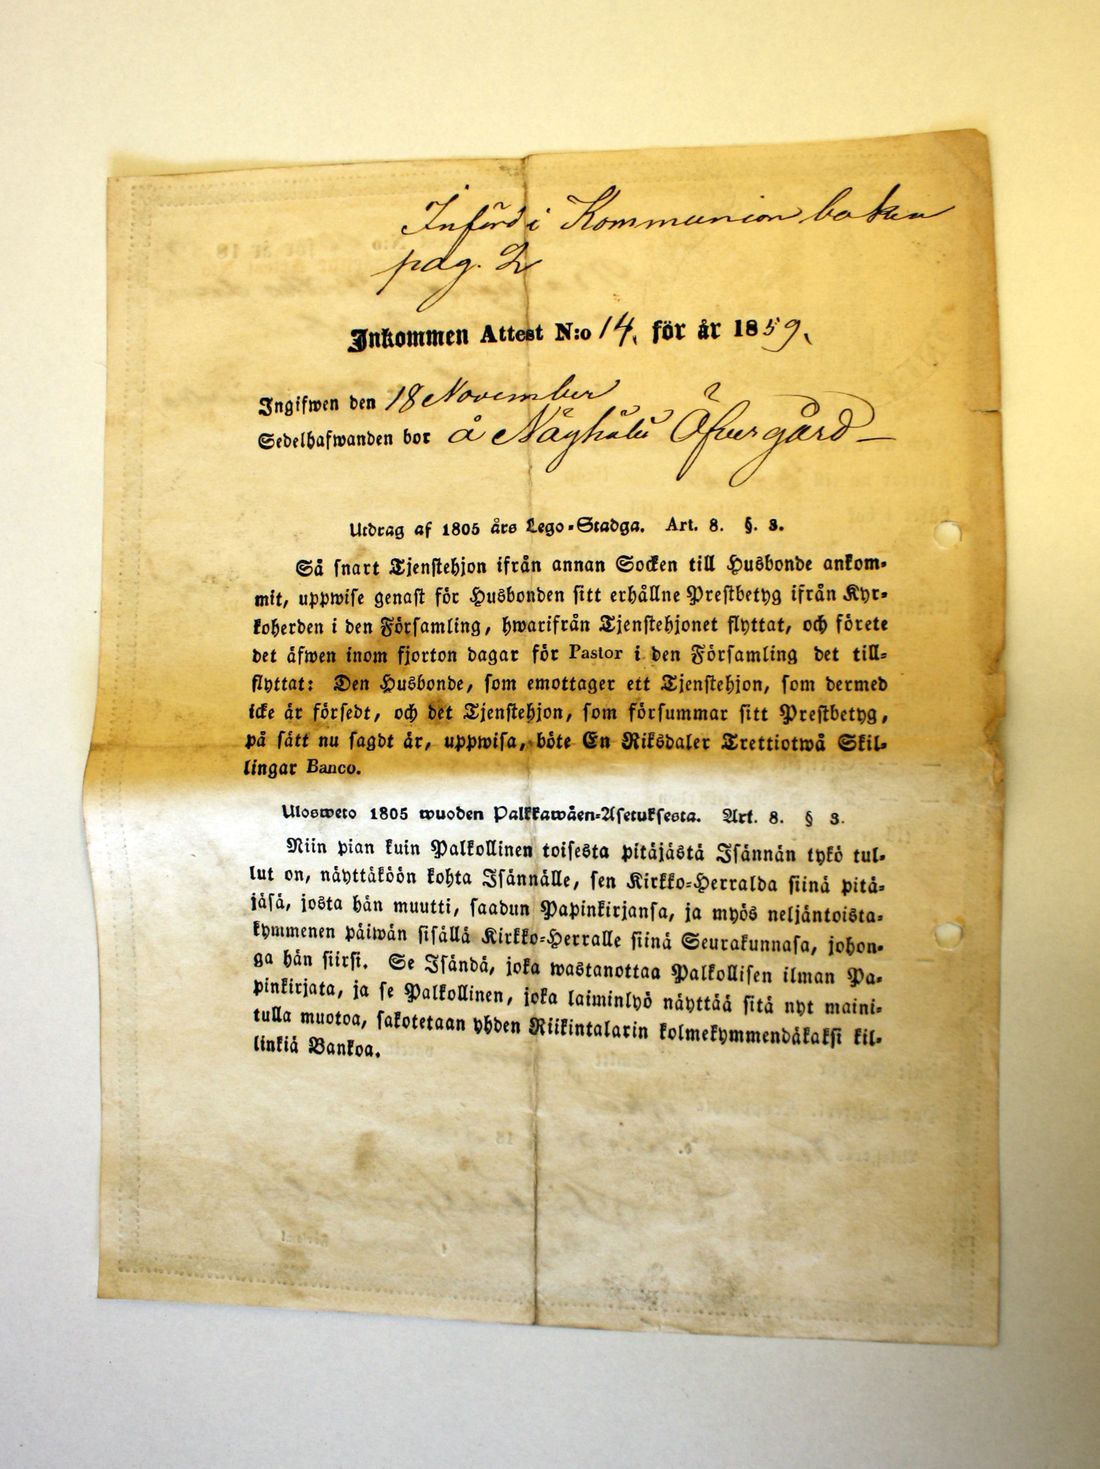 Införd i Kommunion boken
pag. 2
Inkommen Attest N:o 14. för år 1859.
Ingifwen den 18 November
Sedelhafwanden bor å Öfvergård
Utdrag af 1805 års Lego-Stadga. Art. 8. §. 3.
Så snart Tjenstehjon ifrån annan Socken till Husbonde ankom-
mit, uppwise genast för Husbonden sitt erhållne Prestbetyg ifrån Kyr-
koherden i den Församling, hwarifrån Tjenstehjonet flyttat, och förete
det äfwen inom fjorton dagar för Pastor i den Församling det till-
flyttat: Den Husbonde, som emottager ett Tjenstehjon, som dermed
icke är försedt, och det Tjenstehjon, som försummar sitt Prestbetyg,
på sätt nu sagdt är, uppwisa, böte En Riksdaler Trettiotwå Skil-
lingar Banco.
Ulosweto 1805 wuoden Palkkawäen-Asetuksesta. Art. 8. § 3.
Niin pian kuin Palkollinen toisesta pitäjästä Isännän tykö tul-
lut on, näyttäköön kohta Isännälle, sen Kirkko-Herralda siinä pitä-
jäsä, josta hän muutti, saadun Papinkirjansa, ja myös neljäntoista-
kymmenen päiwän sisällä Kirkko-Herralle siinä Seurakunnasa, johon-
ga hän siirsi. Se Isändä, joka wastanottaa Palkollisen ilman Pa-
pinkirjata, ja se Palkollinen, joka laiminlyö näyttää sitä nyt maini-
tulla muotoa, sakotetaan yhden Riikintalarin kolmekymmendäkaksi kil-
linkiä Bankoa.